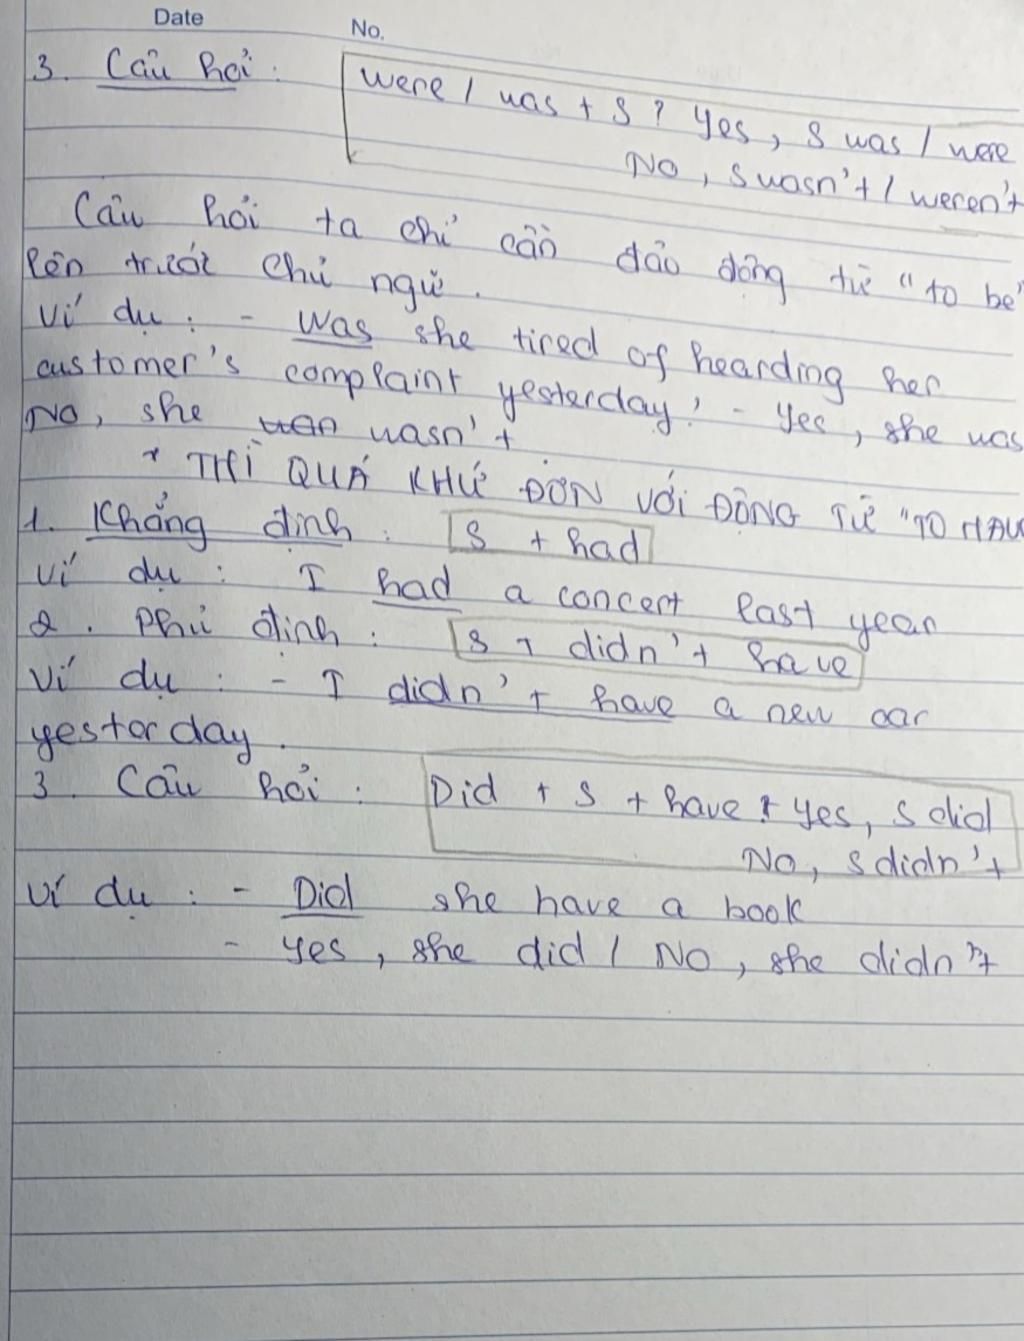 Date No.
3. Câu hỏi : Were / was + S ? Yes, S was / were
No, S wasn't / weren't
Câu hỏi ta chỉ cần đảo động từ "to be"
lên trước chủ ngữ.
Ví dụ : - Was she tired of hearding her
customer's complaint yesterday? - Yes, she was
No, she wasn't
* THÌ QUÁ KHỨ ĐƠN VỚI ĐỘNG TỪ "TO HAV
1. Khẳng định : S + had
Ví dụ : I had a concert last year
2. Phủ định : S + didn't have
Ví dụ : - I didn't have a new car
yesterday.
3. Câu hỏi : Did + S + have ? Yes, S did
No, S didn't
Ví dụ : - Did she have a book
- Yes, she did / No, she didn't